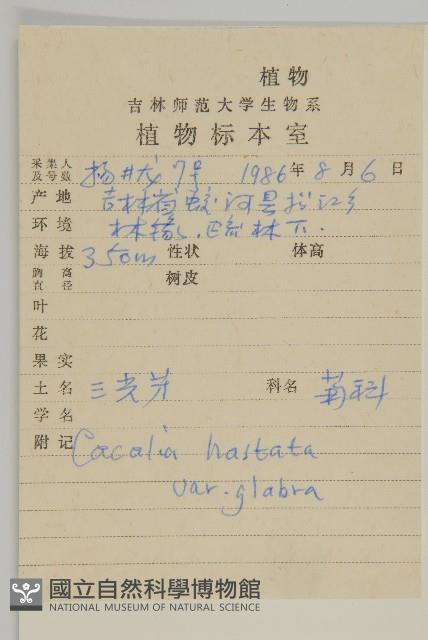 植物
吉林师范大学生物系
植物标本室
采集人及号数 杨 7号 1986年8月6日
产地 吉林省 蛟河县 江乡
环境 林缘、疏林下.
海拔 350m 性状 体高
胸高直径 树皮
叶
花
果实
土名 三光芽 科名 菊科
学名
附记 Cacalia hastata
var. glabra
國立自然科學博物館
NATIONAL MUSEUM OF NATURAL SCIENCE